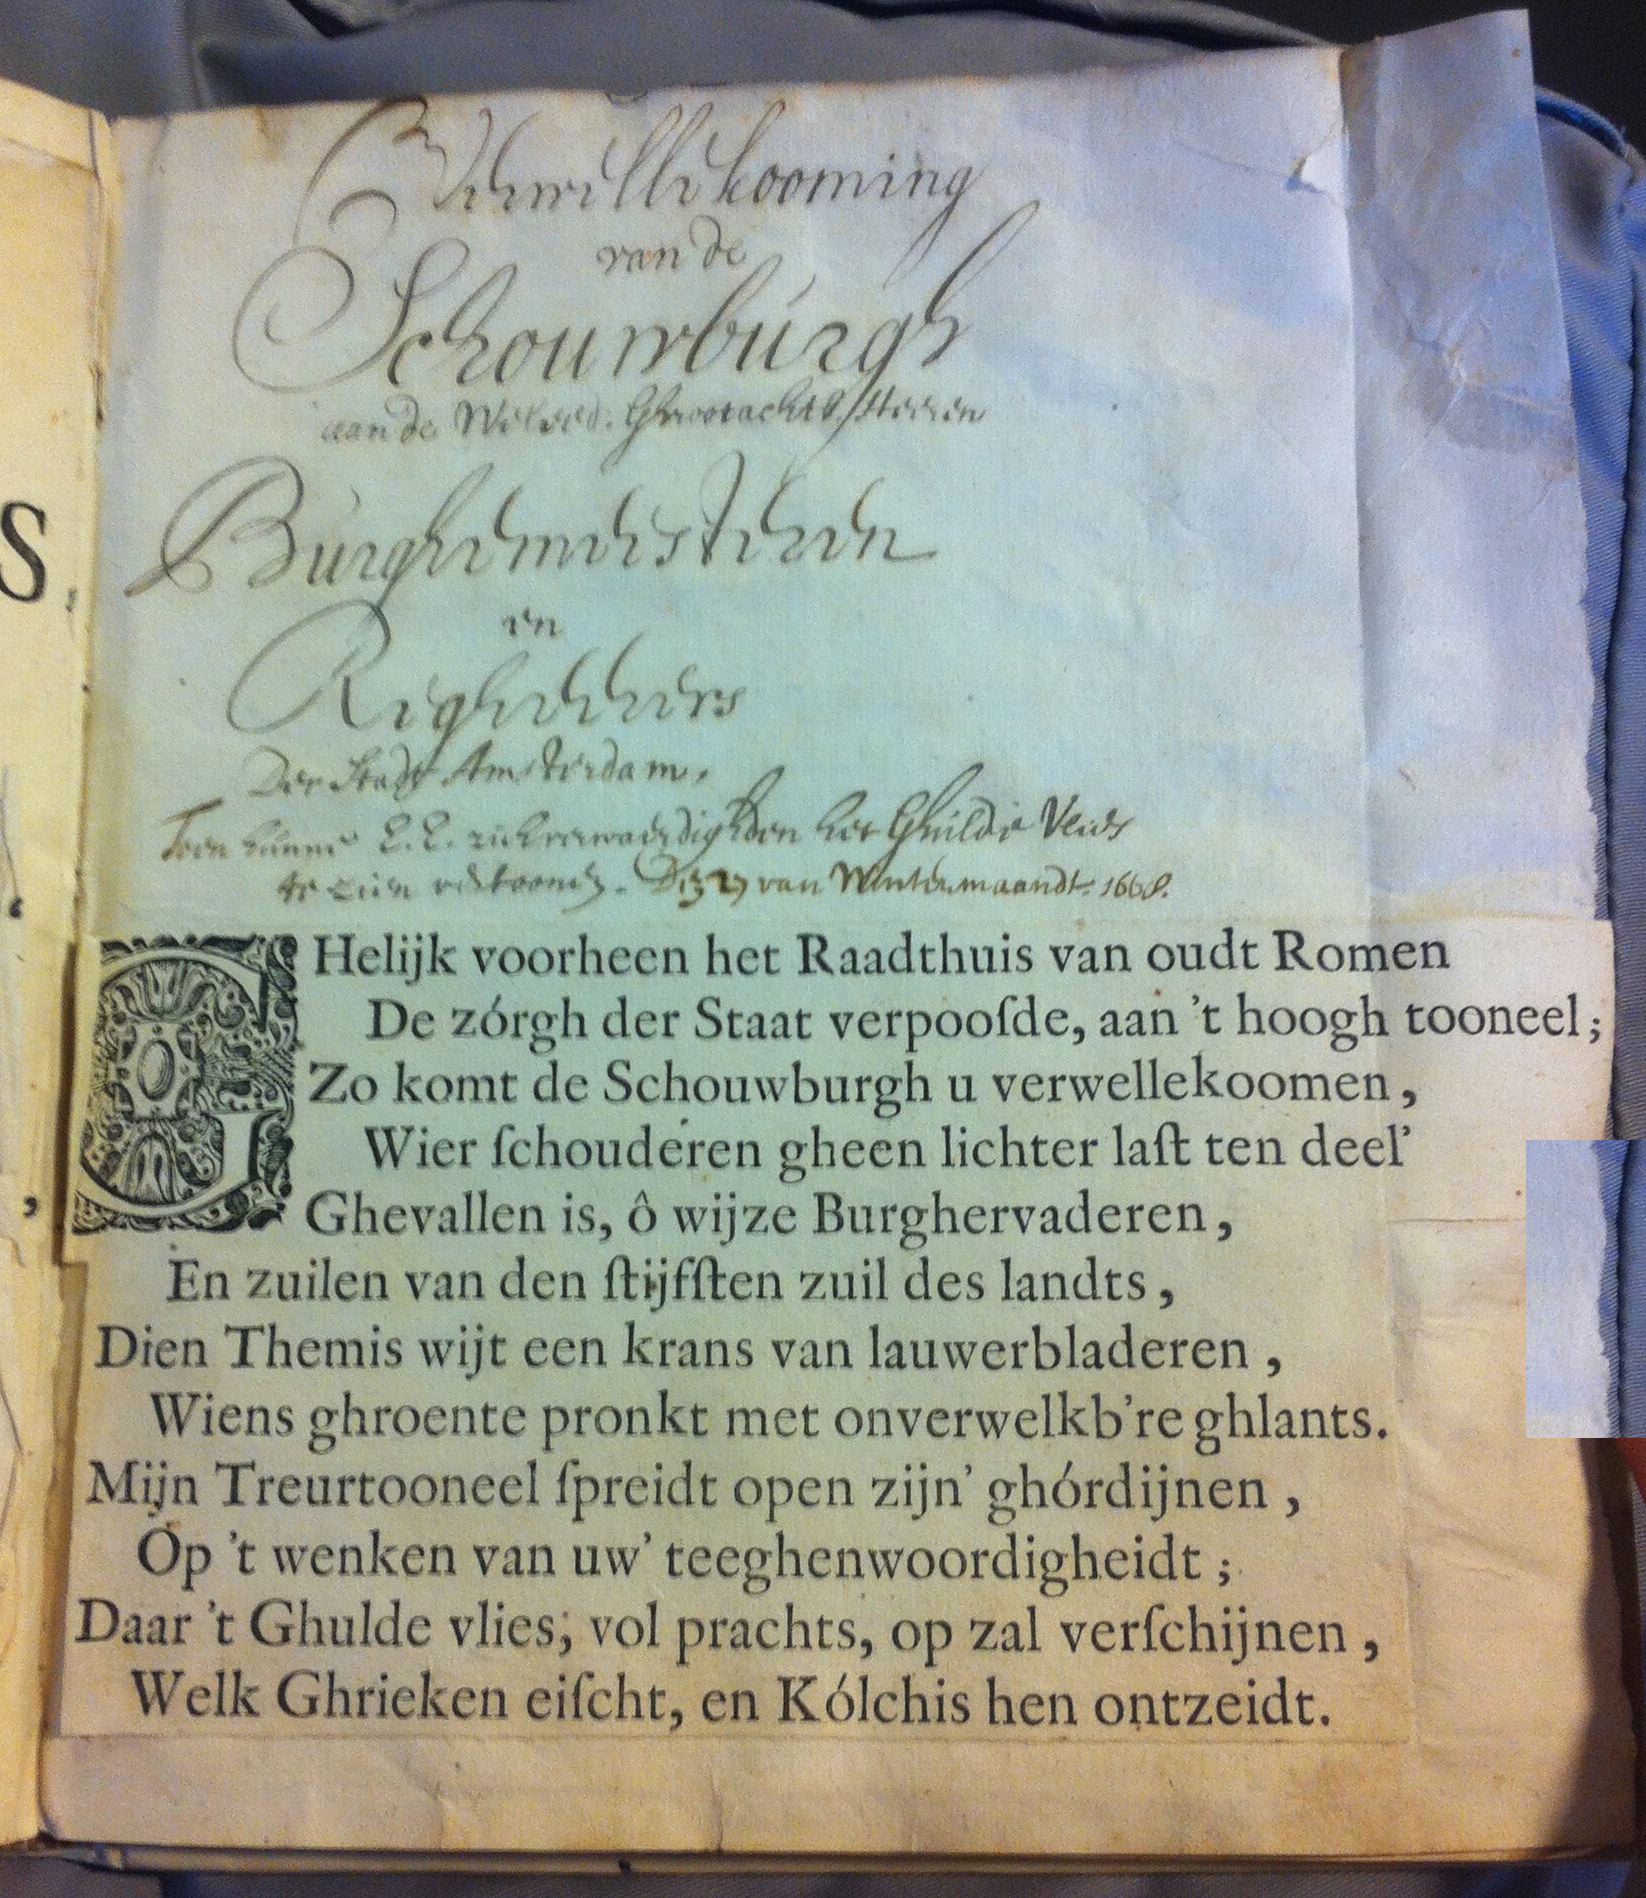 S
Verwellekooming
van de
Schouwburgh
aan de Weleed. Ghrootachtb. Heeren
Burghemeisteren
en
Regheerders
Der Stadt Amsterdam,
Toen hunne E.E. zich verwaerdighden het Ghulde Vlies
te zien vertoonen. Den 27 van Wintermaandt. 1668.
GHelijk voorheen het Raadthuis van oudt Romen
De zórgh der Staat verpooſde, aan 't hoogh tooneel;
Zo komt de Schouwburgh u verwellekoomen,
Wier ſchouderen gheen lichter laſt ten deel'
Ghevallen is, ô wijze Burghervaderen,
En zuilen van den ſtijfſten zuil des landts,
Dien Themis wijt een krans van lauwerbladeren,
Wiens ghroente pronkt met onverwelkb're ghlants.
Mijn Treurtooneel ſpreidt open zijn' ghórdijnen,
Óp 't wenken van uw' teeghenwoordigheidt;
Daar 't Ghulde vlies; vol prachts, op zal verſchijnen,
Welk Ghrieken eiſcht, en Kólchis hen ontzeidt.